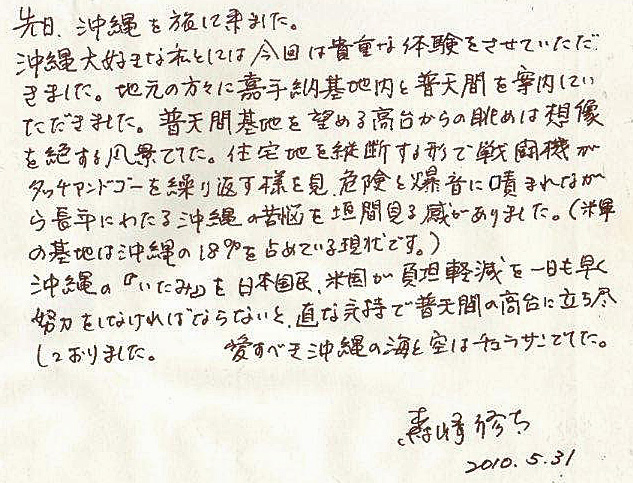 先日、沖縄を旅して来ました。
沖縄大好きな私としては今回は貴重な体験をさせていただ
きました。地元の方々に嘉手納基地内と普天間を案内してい
ただきました。普天間基地を望める高台からの眺めは想像
を絶する風景でした。住宅地を縦断する形で戦闘機が
タッチアンドゴーを繰り返す様を見、危険と爆音に晒されなが
ら長年にわたる沖縄の苦悩を垣間見る感がありました。(米軍
の基地は沖縄の18%を占めている現状です。)
沖縄の『いたみ』を日本国民、米国が負担軽減を一日も早く
努力をしなければならないと、直な気持で普天間の高台に立ち尽
しておりました。 愛すべき沖縄の海と空はチュラサンでした。
2010.5.31